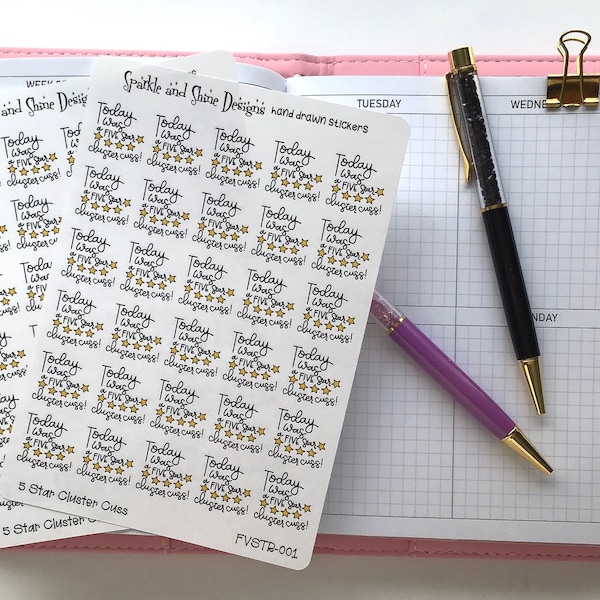 WEEK
TUESDAY
WEDNE
NDAY
and Shine Designs
5 Star Cluster Cuss
Sparkle and Shine Designs hand drawn stickers
Today
was
a FIVE Star
cluster cuss!
Today
was
a FIVE Star
cluster cuss!
Today
was
a FIVE Star
cluster cuss!
Today
was
a FIVE Star
cluster cuss!
Today
was
a FIVE Star
cluster cuss!
Today
was
a FIVE Star
cluster cuss!
Today
was
a FIVE Star
cluster cuss!
Today
was
a FIVE Star
cluster cuss!
Today
was
a FIVE Star
cluster cuss!
Today
was
a FIVE Star
cluster cuss!
Today
was
a FIVE Star
cluster cuss!
Today
was
a FIVE Star
cluster cuss!
Today
was
a FIVE Star
cluster cuss!
Today
was
a FIVE Star
cluster cuss!
Today
was
a FIVE Star
cluster cuss!
Today
was
a FIVE Star
cluster cuss!
Today
was
a FIVE Star
cluster cuss!
Today
was
a FIVE Star
cluster cuss!
Today
was
a FIVE Star
cluster cuss!
Today
was
a FIVE Star
cluster cuss!
Today
was
a FIVE Star
cluster cuss!
Today
was
a FIVE Star
cluster cuss!
Today
was
a FIVE Star
cluster cuss!
Today
was
a FIVE Star
cluster cuss!
Today
was
a FIVE Star
cluster cuss!
Today
was
a FIVE Star
cluster cuss!
Today
was
a FIVE Star
cluster cuss!
Today
was
a FIVE Star
cluster cuss!
Today
was
a FIVE Star
cluster cuss!
Today
was
a FIVE Star
cluster cuss!
5 Star Cluster Cuss
FVSTR-001